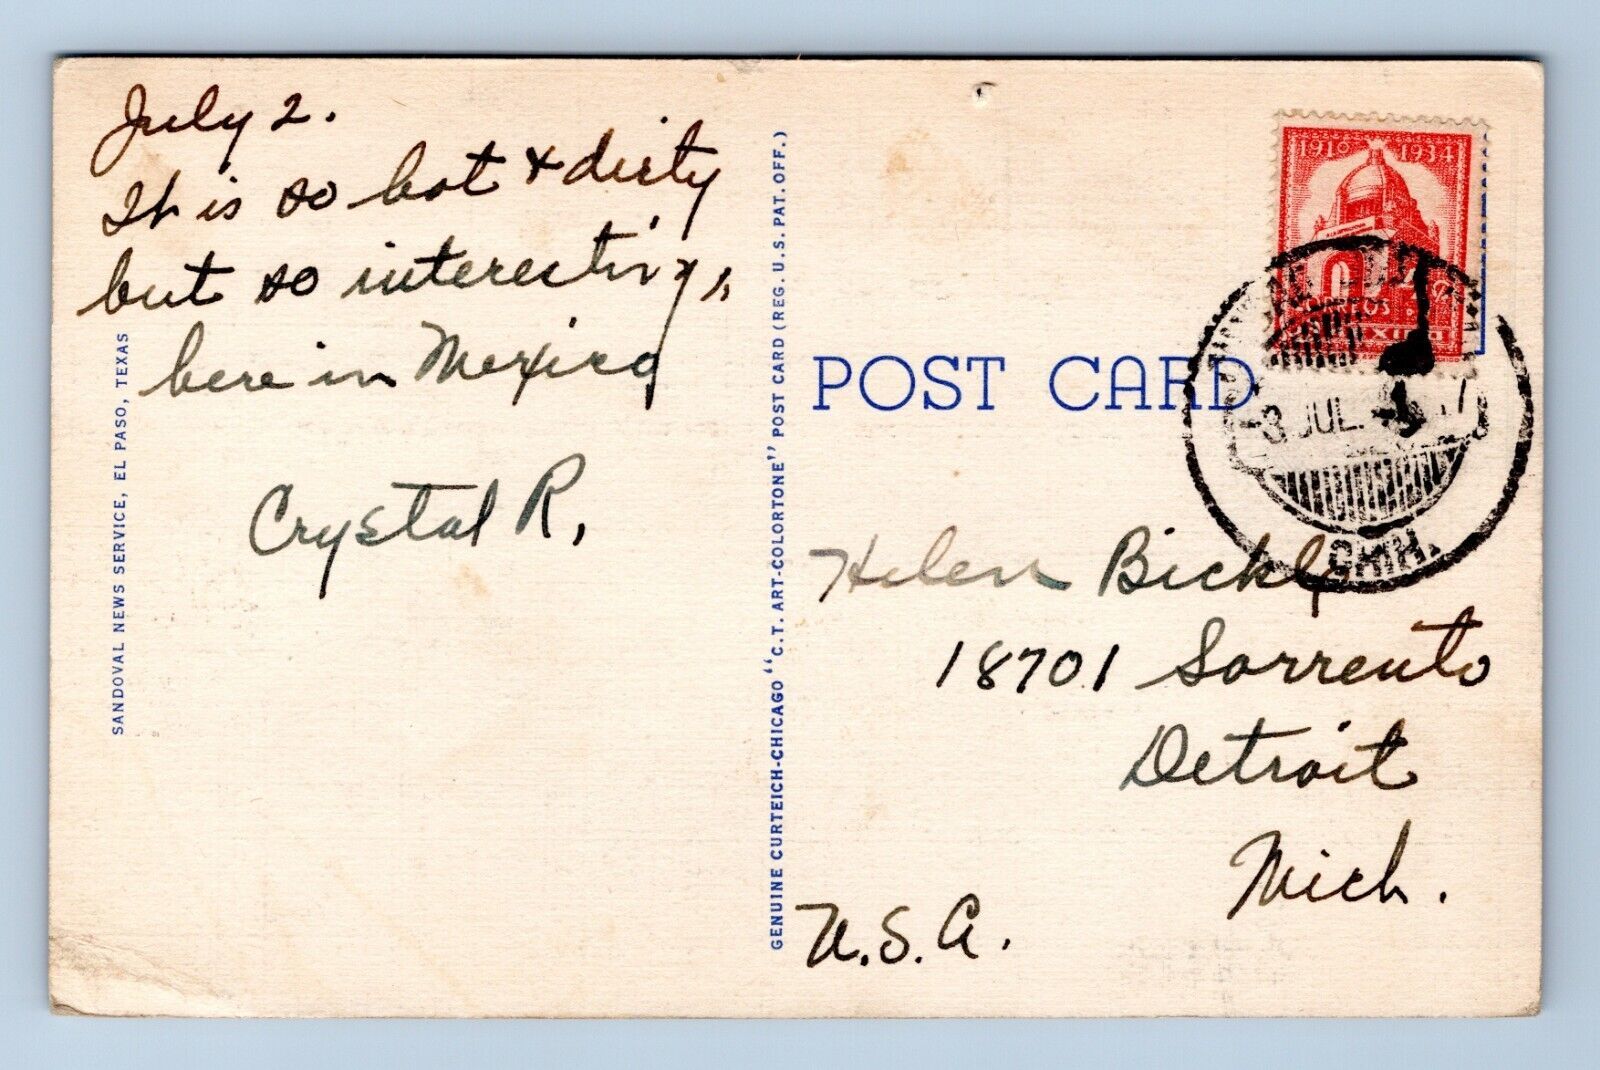 July 2.
It is so hot & dirty
but so interesting,
here in Mexico
Crystal R.
SANDOVAL NEWS SERVICE, EL PASO, TEXAS
GENUINE CURTEICH-CHICAGO "C.T. ART-COLORTONE" POST CARD (REG. U.S. PAT. OFF.)
POST CARD
1910 1934
MEXICO
3 JUL.
CHIH.
Helen Bickly
18701 Sorrento
Detroit
Mich.
U.S.A.